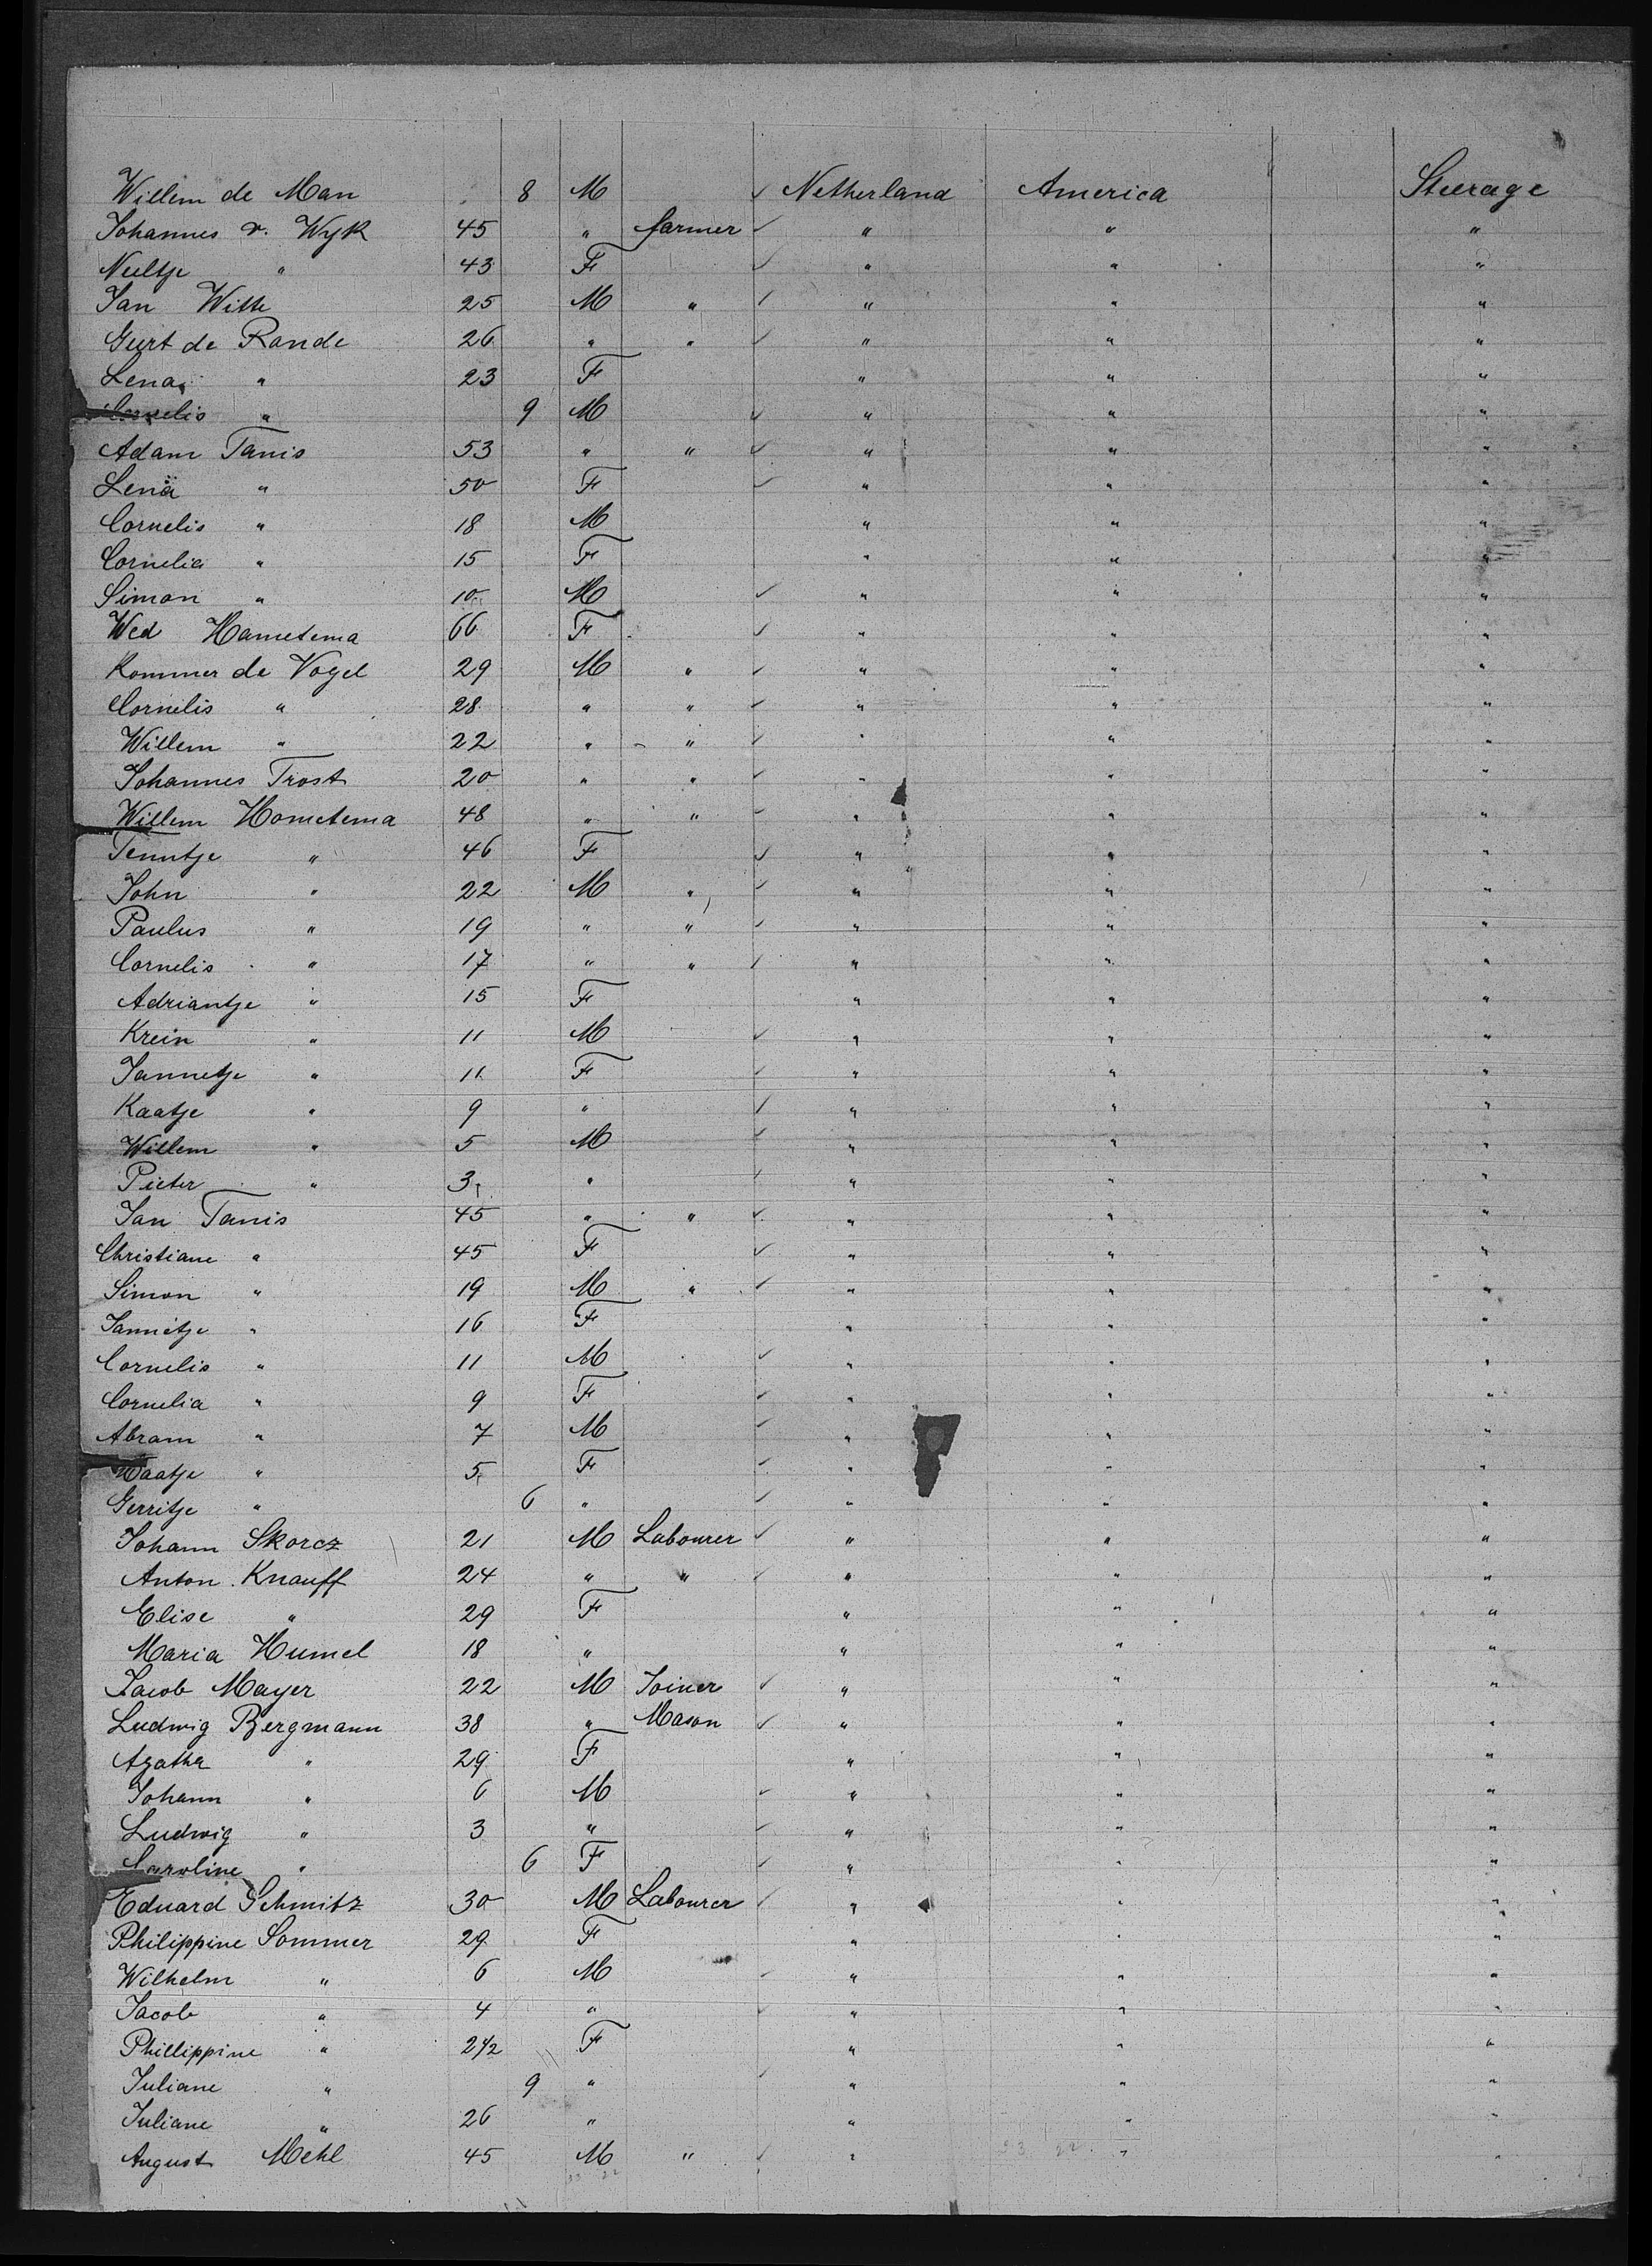 Willem de Man 8 M ✓ Netherland America Steerage
Johannes v. Wyk 45 " farmer ✓ " " "
Neeltje " 43 F ✓ " " "
Jan Witte 25 M " ✓ " " "
Geert de Rande 26 " " ✓ " " "
Lena " 23 F " " "
Cornelis " 9 M ✓ " " "
Adam Tanis 53 " " ✓ " " "
Lena " 50 F ✓ " " "
Cornelis " 18 M " " "
Cornelia " 15 F " " "
Simon " 10 M ✓ " " "
Wed Hametema 66 F ✓ " " "
Kommer de Vogel 29 M " ✓ " " "
Cornelis " 28 " " ✓ " " "
Willem " 22 " " ✓ " " "
Johannes Trost 20 " " ✓ " " "
Willem Hometema 48 " " ✓ " " "
Teuntje " 46 F ✓ " " "
John " 22 M " ✓ " " "
Paulus " 19 " " ✓ " " "
Cornelis " 17 " " ✓ " " "
Adriantje " 15 F " " "
Krein " 11 M ✓ " " "
Jannetje " 11 F ✓ " " "
Kaatje " 9 " ✓ " " "
Willem " 5 M ✓ " " "
Pieter " 3 " ✓ " " "
Jan Tanis 45 " " ✓ " " "
Christiane " 45 F ✓ " " "
Simon " 19 M " ✓ " " "
Jannetje " 16 F " " "
Cornelis " 11 M ✓ " " "
Cornelia " 9 F ✓ " " "
Abram " 7 M ✓ " " "
" 5 F ✓ " " "
Gerritje " 6 " ✓ " " "
Johann Skorcz 21 M Labourer ✓ " " "
Anton Knauff 24 " " ✓ " " "
Elise " 29 F " " "
Maria Humel 18 " " " "
Jacob Mayer 22 M Joiner ✓ " " "
Ludwig Bergmann 38 " Mason ✓ " " "
Agathe " 29 F " " "
Johann " 6 M ✓ " " "
Ludwig " 3 " ✓ " " "
Caroline " 6 F ✓ " " "
Eduard Schmitz 30 M Labourer ✓ " " "
Philippine Sommer 29 F " " "
Wilhelm " 6 M ✓ " " "
Jacob " 4 " ✓ " " "
Phillippine " 2 1/2 F " " "
Juliane " 9 " ✓ " " "
Juliane " 26 " " " "
August Mehl 45 M " ✓ " " "